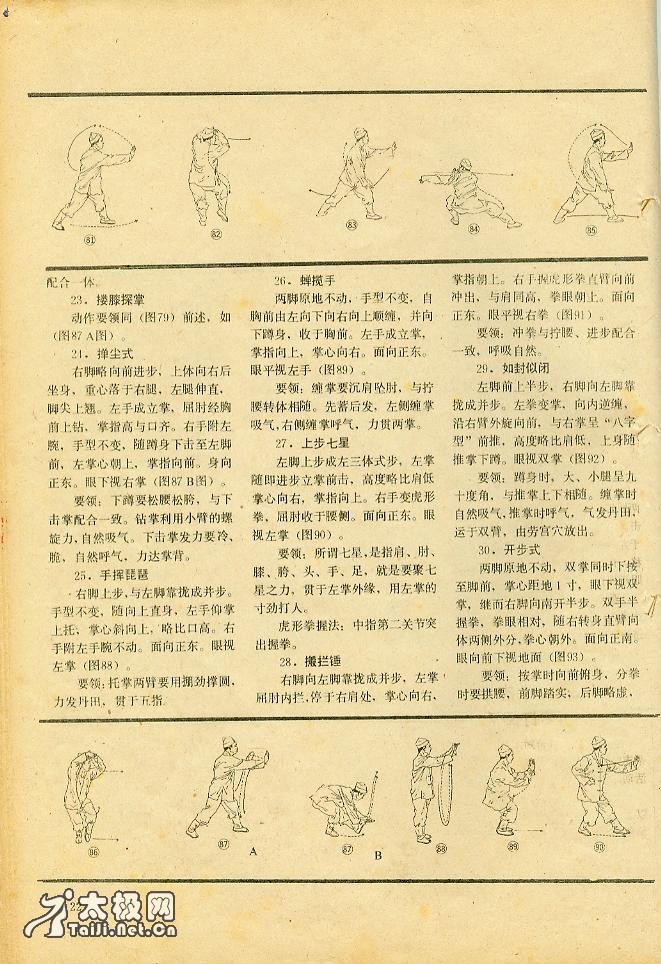 81
82
83
84
85
配合一体。
23．搂膝探掌
动作要领同（图79）前述，如
(图87 A图）。
24．掸尘式
右脚略向前进步，上体向右后
坐身，重心落于右腿，左腿伸直，
脚尖上翘。左手成立掌，屈肘经胸
前上钻，掌指高与口齐。右手附左
腕，手型不变，随蹲身下击至左脚
前，左掌心朝上，掌指向前。身向
正东。眼下视右掌（图87 B图）。
要领：下蹲要松腰松胯，与下
击掌配合一致。钻掌利用小臂的螺
旋力，自然吸气。下击掌发力要冷、
脆，自然呼气，力达掌背。
25．手挥琵琶
右脚上步，与左脚靠拢成并步。
手型不变，随向上直身，左手仰掌
上托，掌心斜向上，略比口高。右
手附左手腕不动。面向正东。眼视
左掌（图88）。
要领：托掌两臂要用掤劲撑圆，
力发丹田，贯于五指。
26．蝉揽手
两脚原地不动，手型不变，自
胸前由左向下向右向上顺缠，并向
下蹲身，收于胸前。左手成立掌，
掌指向上，掌心向右。面向正东。
眼平视左手（图89）。
要领：缠掌要沉肩坠肘，与拧
腰转体相随。先蓄后发，左侧缠掌
吸气，右侧缠掌呼气，力贯两掌。
27．上步七星
左脚上步成左三体式步，左掌
随即进步立掌前击，高度略比肩低
掌心向右，掌指向上。右手变虎形
拳，屈肘收于腰侧。面向正东。眼
视左掌（图90）。
要领：所谓七星，是指肩、肘、
膝、胯、头、手、足，就是要聚七
星之力，贯于左掌外缘，用左掌的
寸劲打人。
虎形拳握法：中指第二关节突
出握拳。
28．搬拦锤
右脚向左脚靠拢成并步，左掌
屈肘内拦，停于右肩处，掌心向右，
掌指朝上。右手握虎形拳直臂向前
冲出，与肩同高，拳眼朝上。面向
正东。眼平视右拳（图91）。
要领：冲拳与拧腰、进步配合
一致，呼吸自然。
29．如封似闭
左脚前上半步，右脚向左脚靠
拢成并步。左拳变掌，向内逆缠，
沿右臂外旋向前，与右掌呈“八字
型”前推，高度略比肩低，上身随
推掌下蹲。眼视双掌（图92）。
要领：蹲身时，大、小腿呈九
十度角，与推掌上下相随。缠掌时
自然吸气，推掌时呼气，气发丹田，
运于双臂，由劳宫穴放出。
30．开步式
两脚原地不动，双掌同时下按
至脚前，掌心距地1寸，眼下视双
掌，继而右脚向南开半步。双手半
握拳，拳眼相对，随右转身直臂向
体两侧外分，拳心朝外。面向正南。
眼向前下视地面（图93）。
要领：按掌时向前俯身，分拳
时要拱腰，前脚踏实，后脚略虚，
86
87
A
87
B
88
89
90
22
太极网
TaiJi.Net.Cn